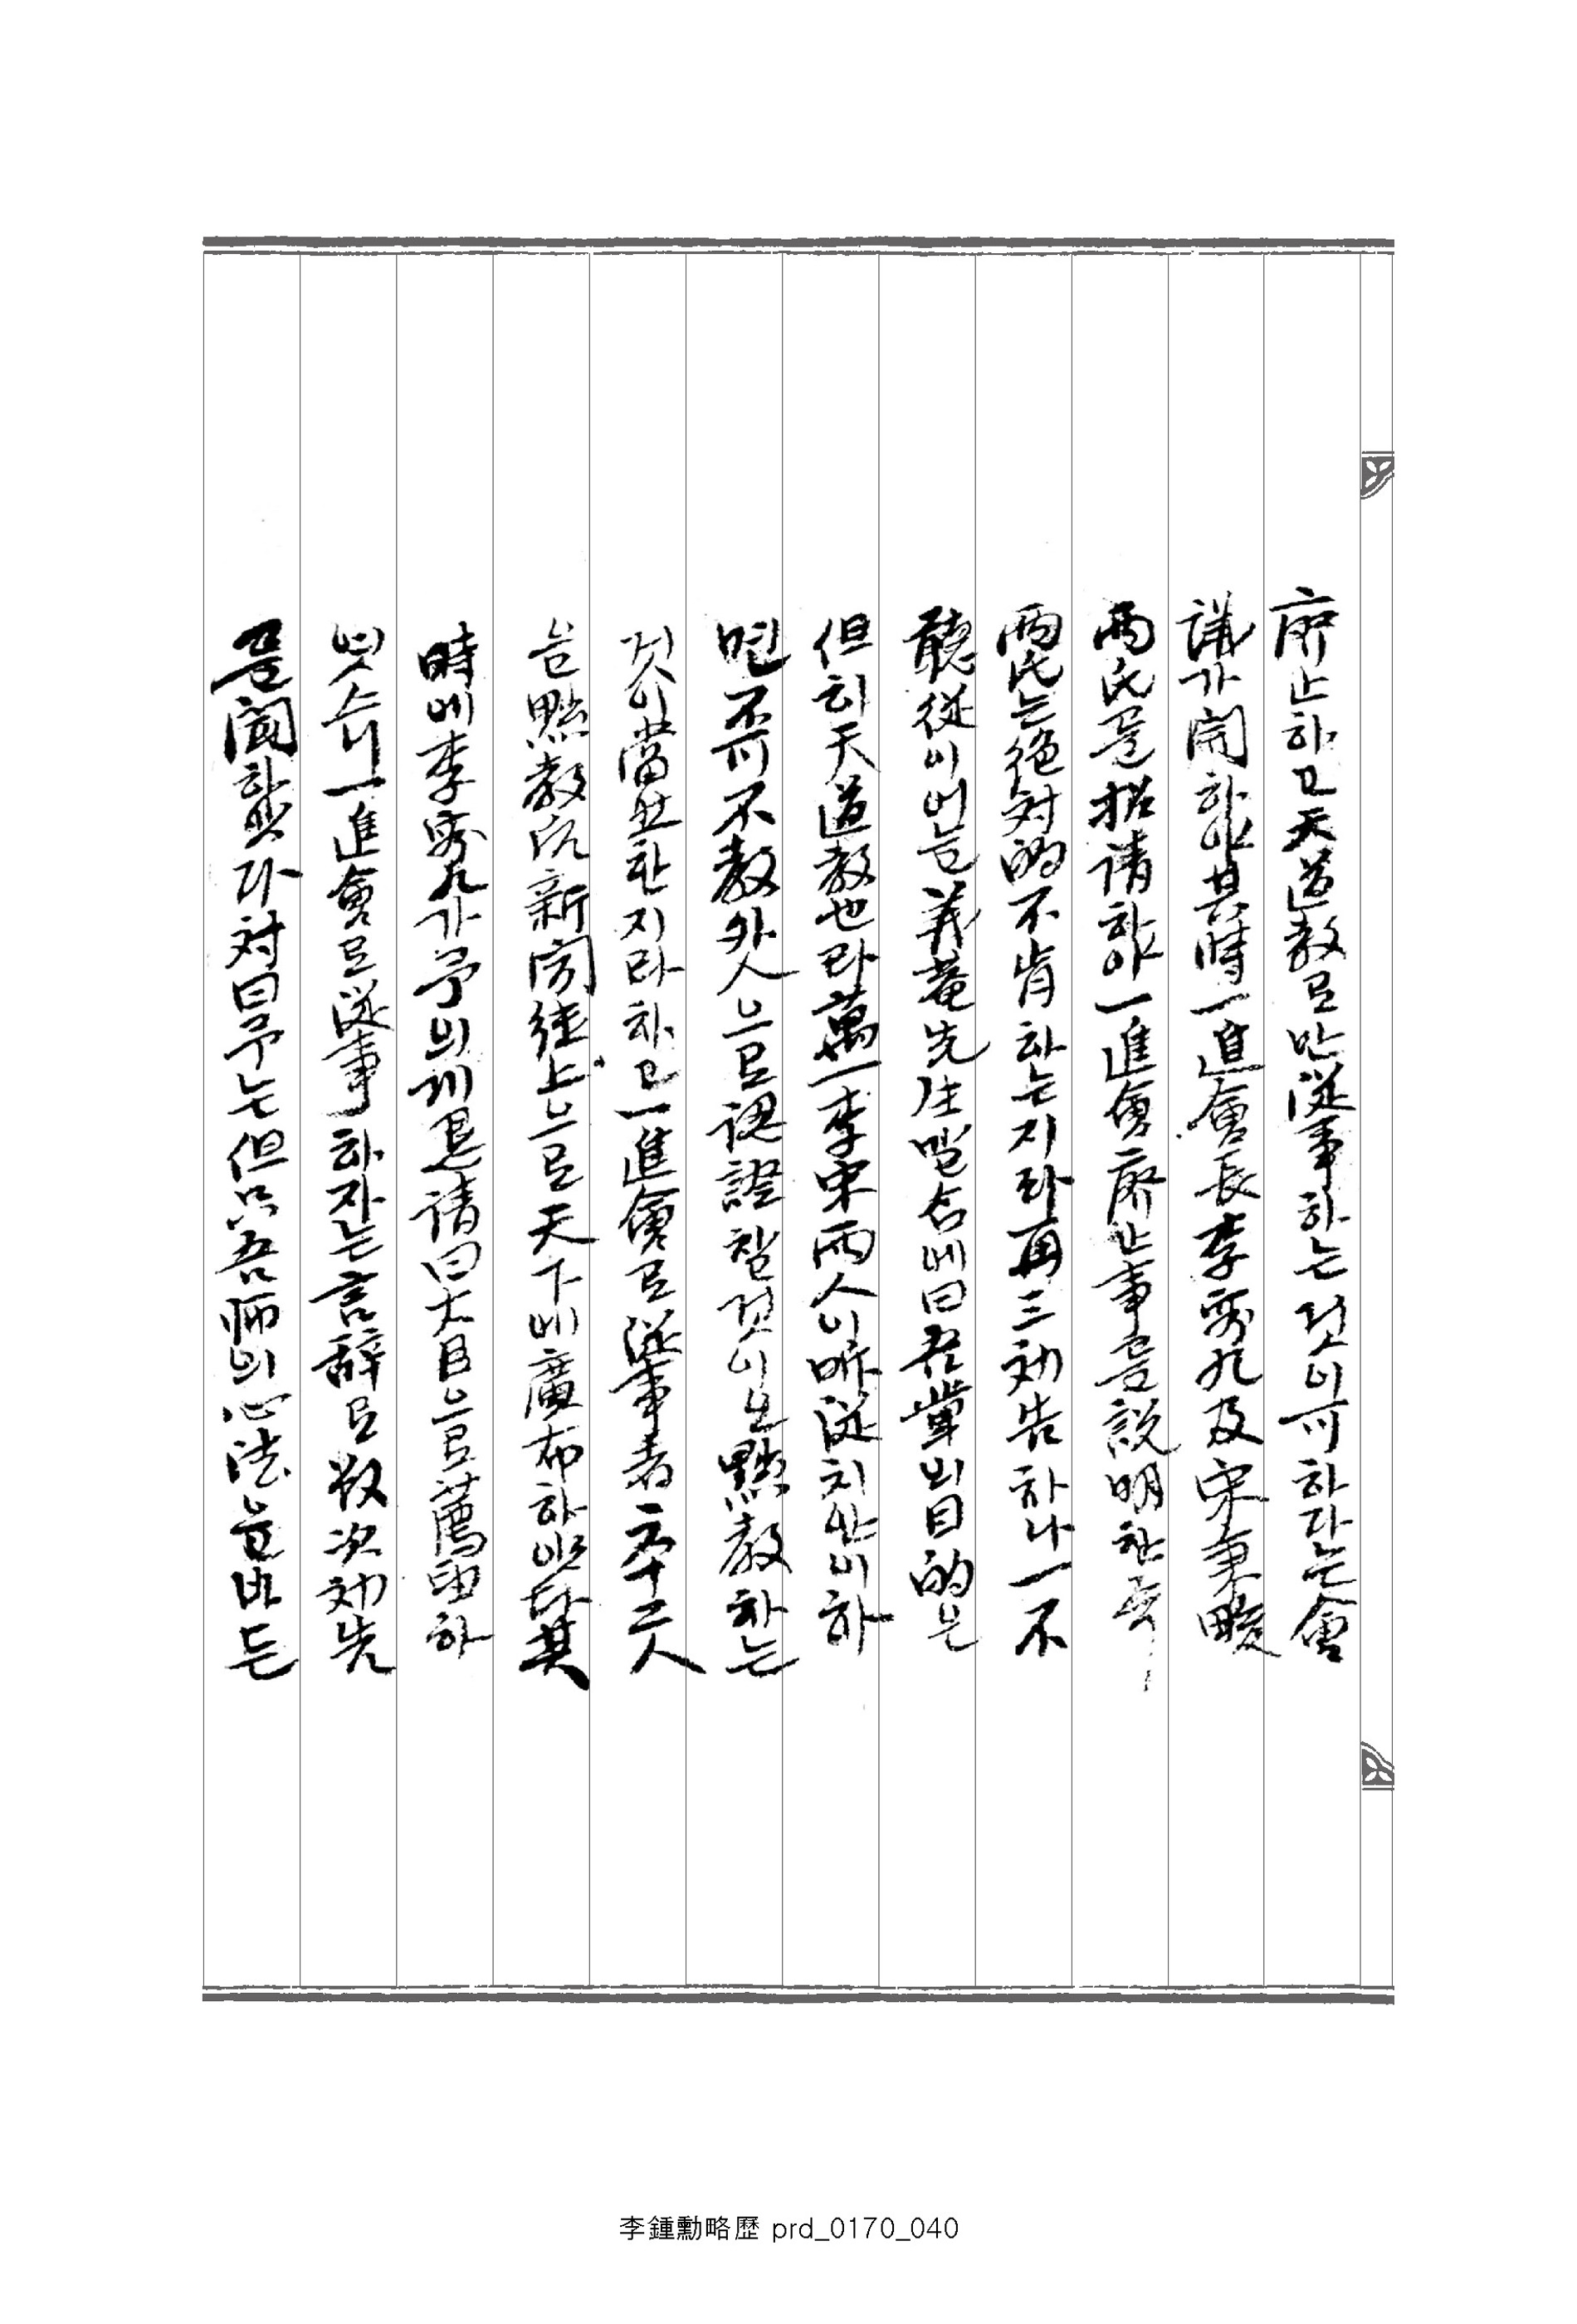 廢止하고天道敎로만從事하는것이可하다는會
議가開하야其時一進會長李容九及宋秉畯
兩氏를招請하야一進會廢止事를說明한즉
兩氏는絶対的不肯하는지라再三勸告하나一不
聽從이어늘義菴先生꾀셔曰君輩의目的은
但히天道敎也라萬一李宋兩人이聽從치안이하
면不可不敎外人으로認證할것이니黜敎하는
것이當然한지라하고一進會로從事者六十二人
을黜敎한新聞紙上으로天下에廣布하얏다其
時에李容九가予의게懇請曰大臣으로薦하
엿스니一進會로從事하자는言辭로數次勸告
를聞하얏다対曰予는但只吾師의心法을바든